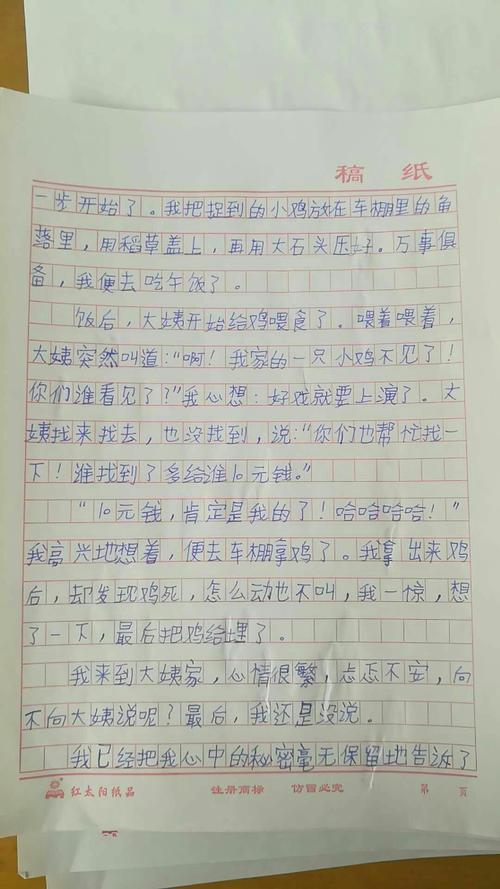 稿 纸
一步开始了。我把捉到的小鸡放在车棚里的角
落里，用稻草盖上，再用大石头压好。万事俱
备，我便去吃午饭了。
饭后，大姨开始给鸡喂食了。喂着喂着，
大姨突然叫道：“啊！我家的一只小鸡不见了！
你们谁看见了？”我心想：好戏就要上演了。大
姨找来找去，也没找到，说：“你们也帮忙找一
下！谁找到了多给谁10元钱。”
“10元钱，肯定是我的了！哈哈哈哈！”
我高兴地想着，便去车棚拿鸡了。我拿出来鸡
后，却发现鸡死，怎么动也不叫，我一惊，想
了一下，最后把鸡给埋了。
我来到大姨家，心情很繁，忐忑不安，向
不向大姨说呢？最后，我还是没说。
我已经把我心中的秘密毫无保留地告诉了
红太阳纸品 注册商标 仿冒必究 第 页